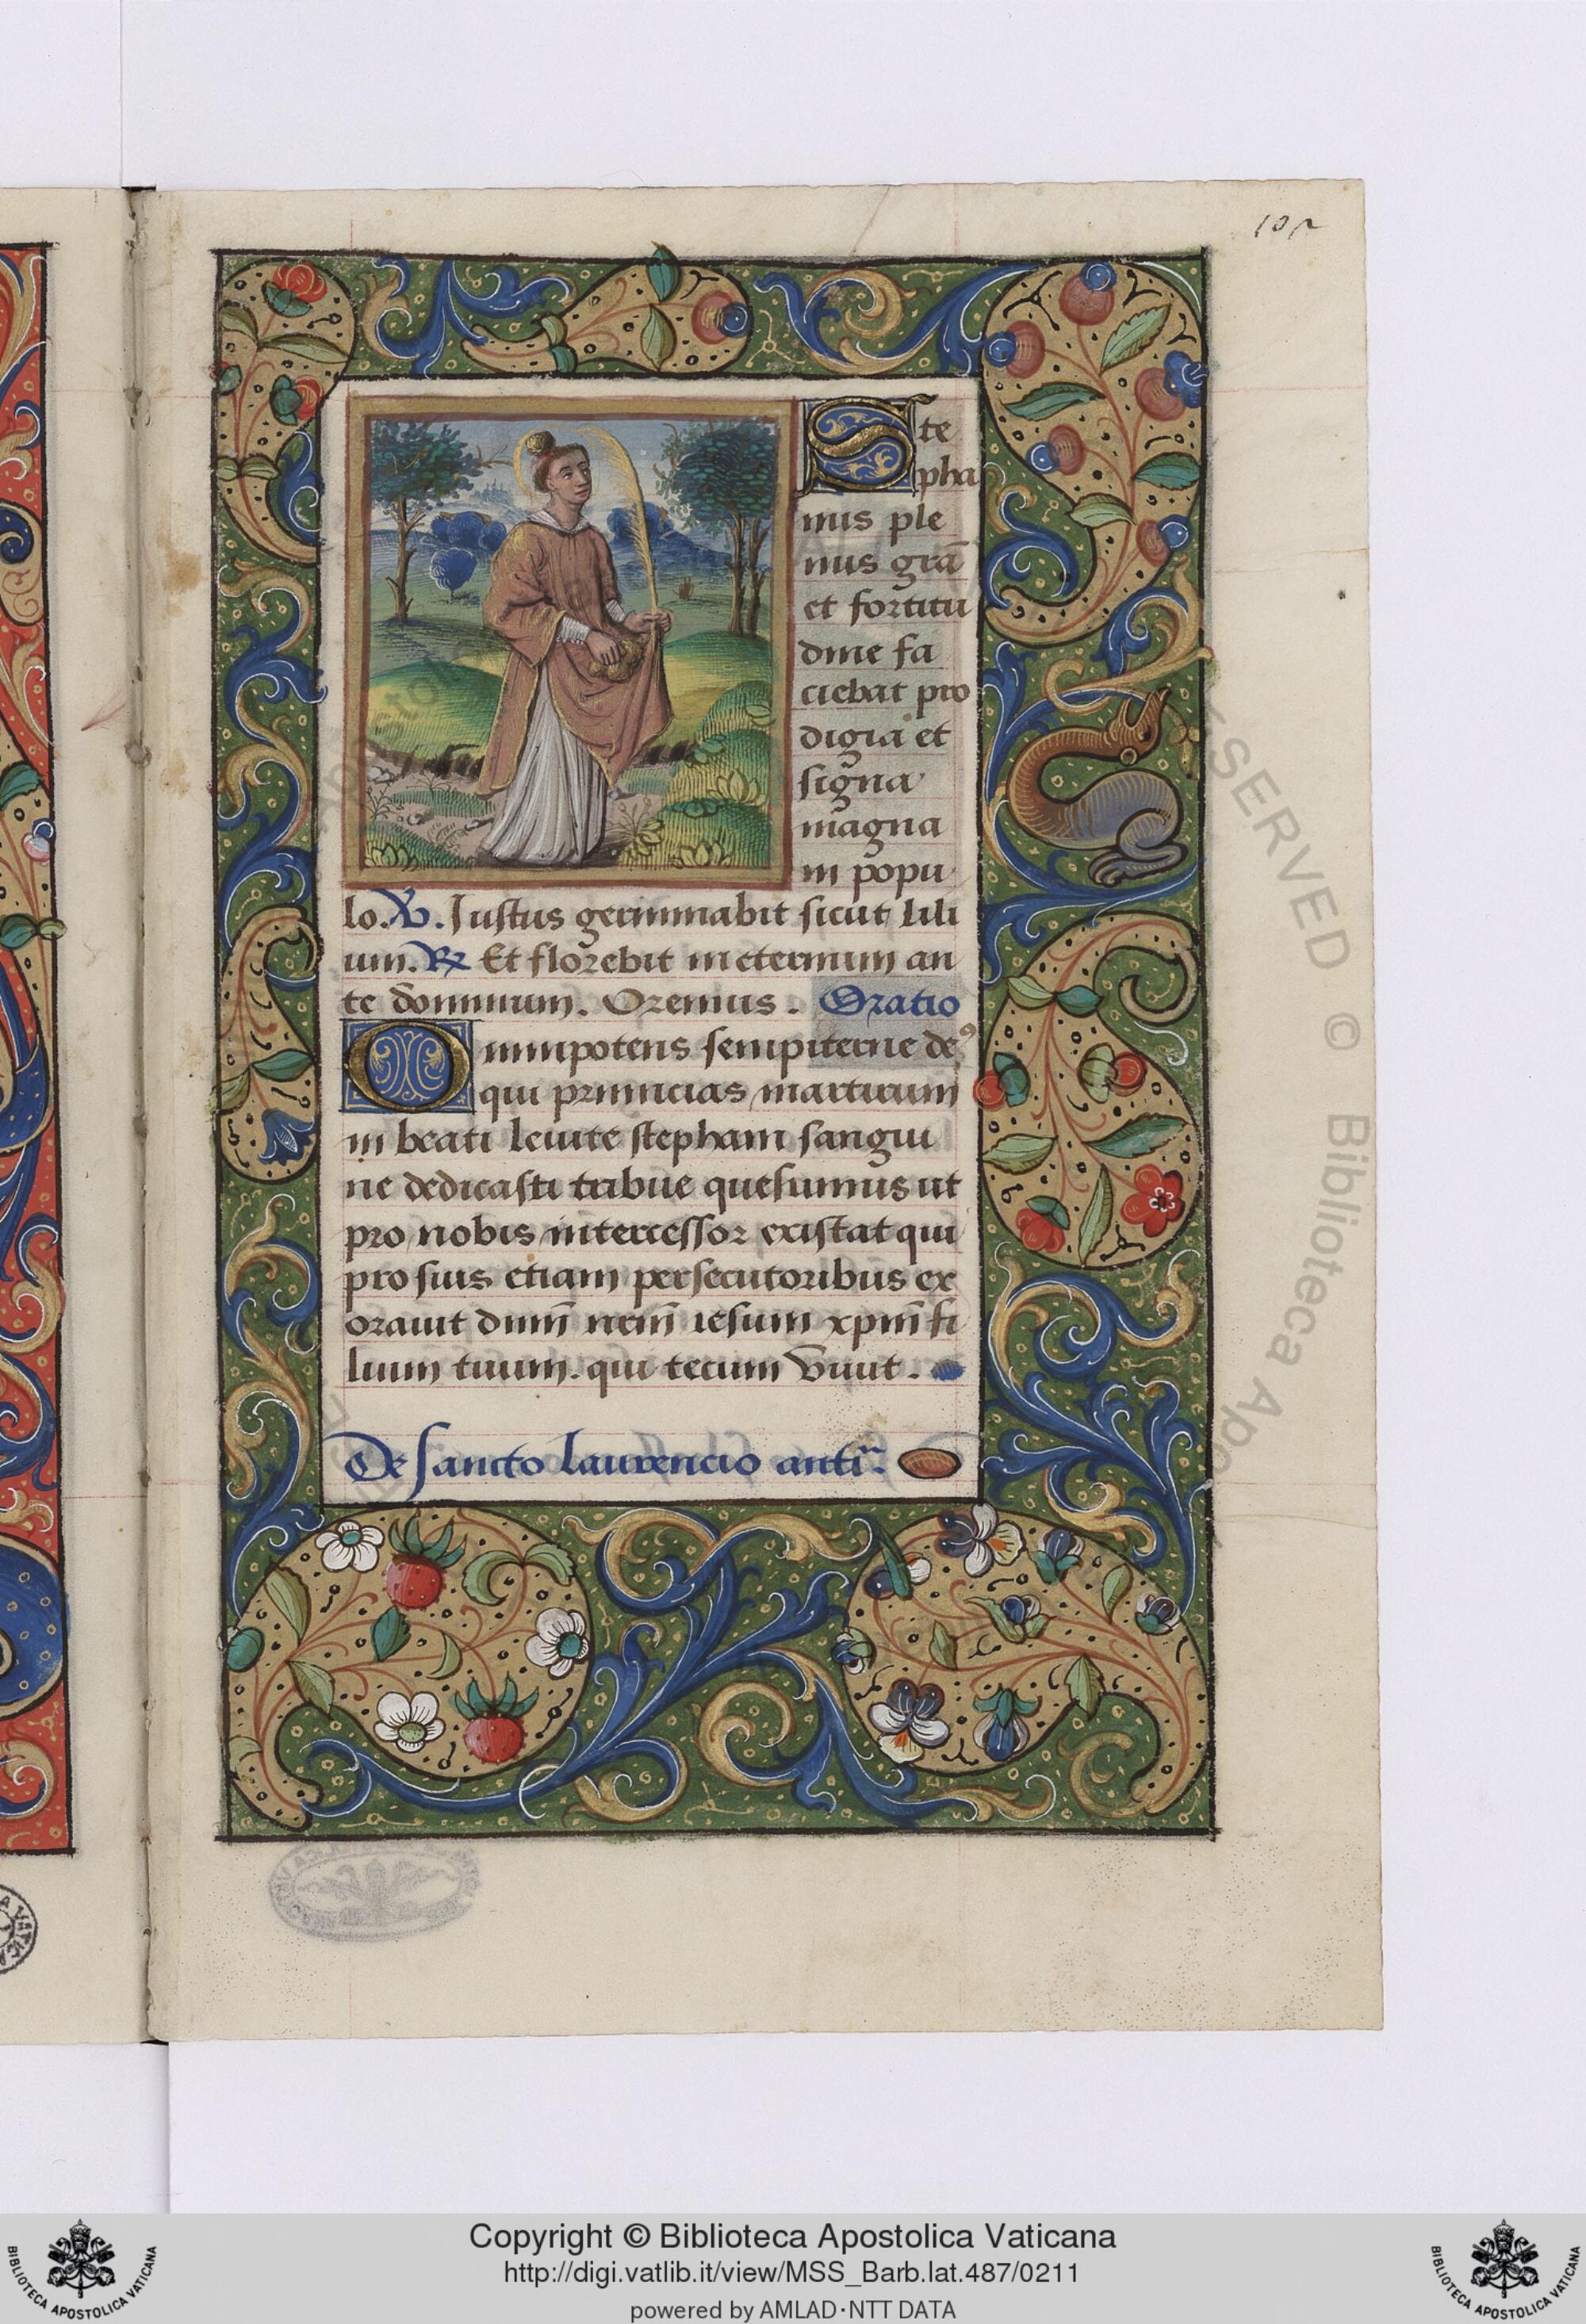 105
Ste
pha
nus ple
nus grā
et fortitu
dine fa
ciebat pro
digia et
signa
magna
in popu
lo. ℣. Iustus germinabit sicut lili
um. ℞ Et florebit in eternum an
te dominum. Oremus. Oratio
Omnipotens sempiterne deꝰ
qui primicias martirum
in beati leuite stephani sangui
ne dedicasti tribue quesumus ut
pro nobis intercessor existat qui
pro suis etiam persecutoribus ex
orauit dnm̄ nrm̄ iesum xpm̄ fi
lium tuum. qui tecum viuit.
De sancto laurencio antiᵃ.
SERVED © Biblioteca Apo
Copyright © Biblioteca Apostolica Vaticana
http://digi.vatlib.it/view/MSS_Barb.lat.487/0211
powered by AMLAD·NTT DATA
BIBLIOTECA APOSTOLICA VATICANA
BIBLIOTECA APOSTOLICA VATICANA